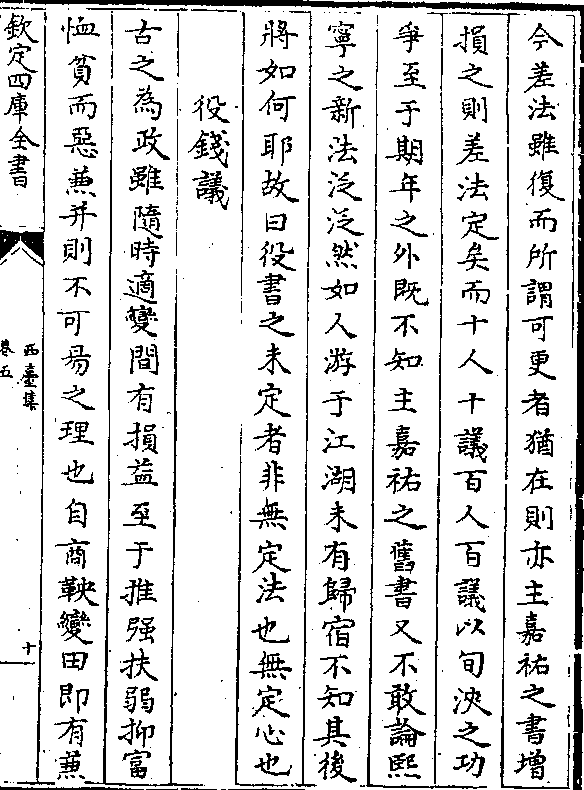 今差法雖復而所謂可更者猶在則亦主嘉祐之書增
損之則差法定矣而十人十議百人百議以旬浹之功
爭至于期年之外既不知主嘉祐之舊書又不敢論熙
寧之新法泛泛然如人游于江湖未有歸宿不知其後
將如何耶故曰役書之未定者非無定法也無定心也
役錢議
古之為政雖隨時適變間有損益至于推强扶弱抑富
恤貧而惡兼并則不可易之理也自商鞅變田即有兼
欽定四庫全書
西臺集
卷五
十